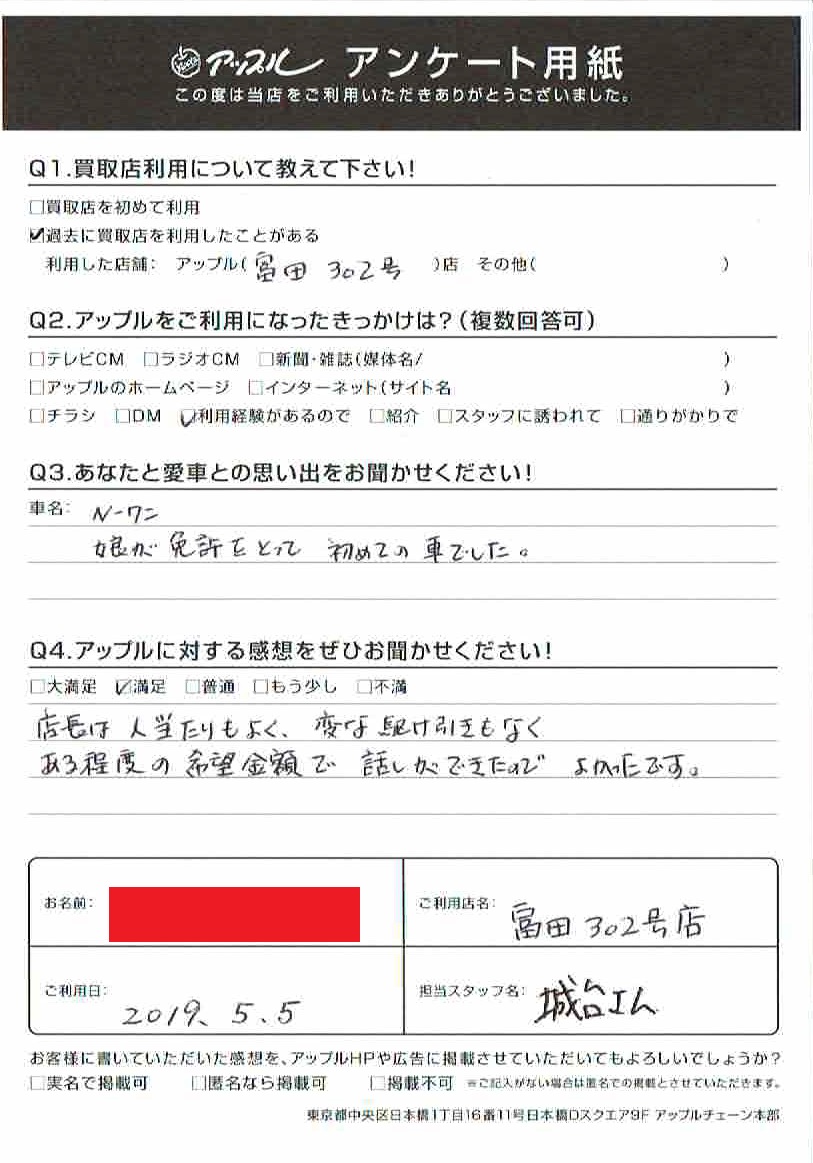 アップル アンケート用紙
この度は当店をご利用いただきありがとうございました。
Q1.買取店利用について教えて下さい!
□買取店を初めて利用
☑過去に買取店を利用したことがある
利用した店舗: アップル(富田 302号)店 その他( )
Q2.アップルをご利用になったきっかけは?(複数回答可)
□テレビCM □ラジオCM □新聞・雑誌(媒体名/ )
□アップルのホームページ □インターネット(サイト名 )
□チラシ □DM ☑利用経験があるので □紹介 □スタッフに誘われて □通りがかりで
Q3.あなたと愛車との思い出をお聞かせください!
車名: N-ワン
娘が免許をとって 初めての車でした。
Q4.アップルに対する感想をぜひお聞かせください!
□大満足 ☑満足 □普通 □もう少し □不満
店長は人当たりもよく、変な駆け引きもなく
ある程度の希望金額で 話しができたので よかったです。
お名前:
ご利用店名: 富田302号店
ご利用日: 2019. 5. 5
担当スタッフ名:
お客様に書いていただいた感想を、アップルHPや広告に掲載させていただいてもよろしいでしょうか?
□実名で掲載可 □匿名なら掲載可 □掲載不可 ※ご記入がない場合は匿名での掲載とさせていただきます。
東京都中央区日本橋1丁目16番11号日本橋Dスクエア9F アップルチェーン本部